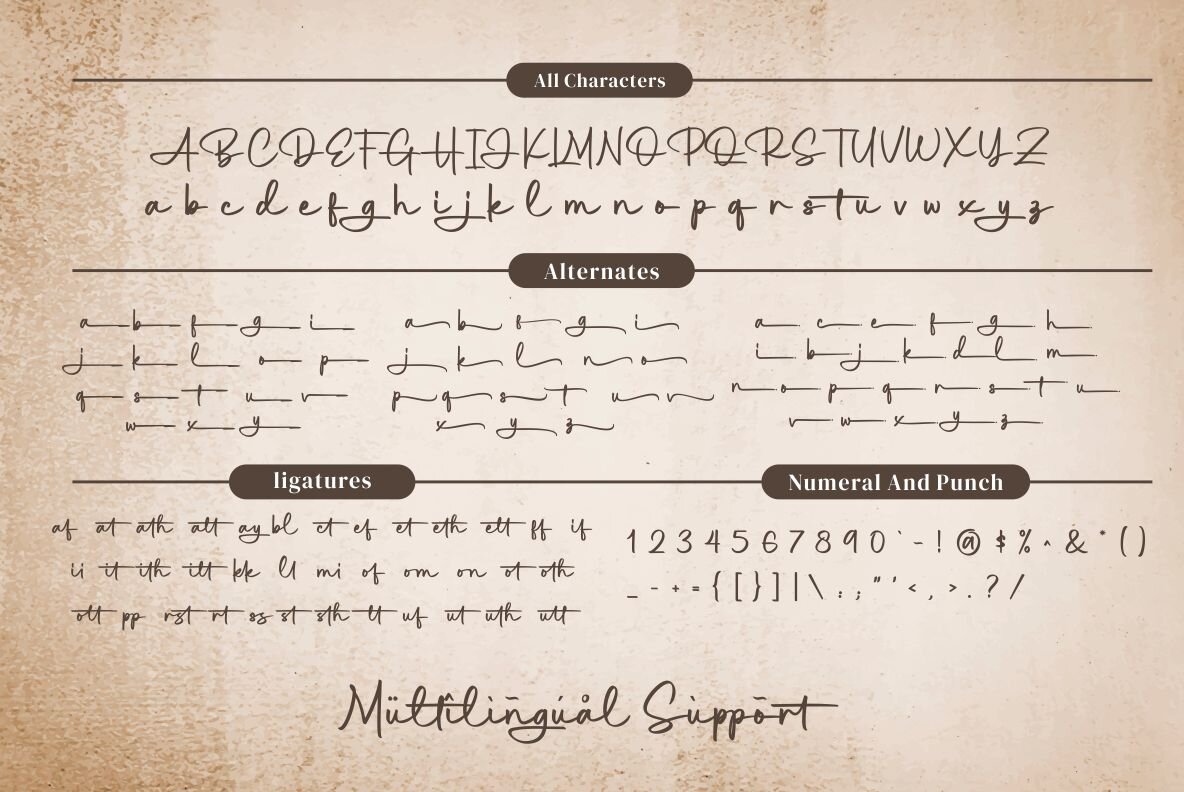 All Characters
A B C D E F G H I J K L M N O P Q R S T U V W X Y Z
a b c d e f g h i j k l m n o p q r s t u v w x y z
Alternates
a b f g i
j k l o p
q s t u v
w x y
a b f g i
j k l n o
p q s t u v
x y z
a c e f g h
i b j k d l m
n o p q r s t u
v w x y z
ligatures
af at ath att ay bl ct ef et eth ett ff if
ii it ith itt kk ll mi of om on ot oth
ott pp rst rt ss st sth tt uf ut uth utt
Numeral And Punch
1 2 3 4 5 6 7 8 9 0 ` ~ ! @ $ % ^ & * ( )
_ - + = { [ } ] | \ : ; " ' < , > . ? /
Mültîlingúål Sùppõrt